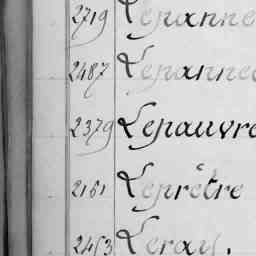 2719 Lepanne
2487 Lepannec
2379 Lepauvre
2161 Leprêtre
2453 Leray.